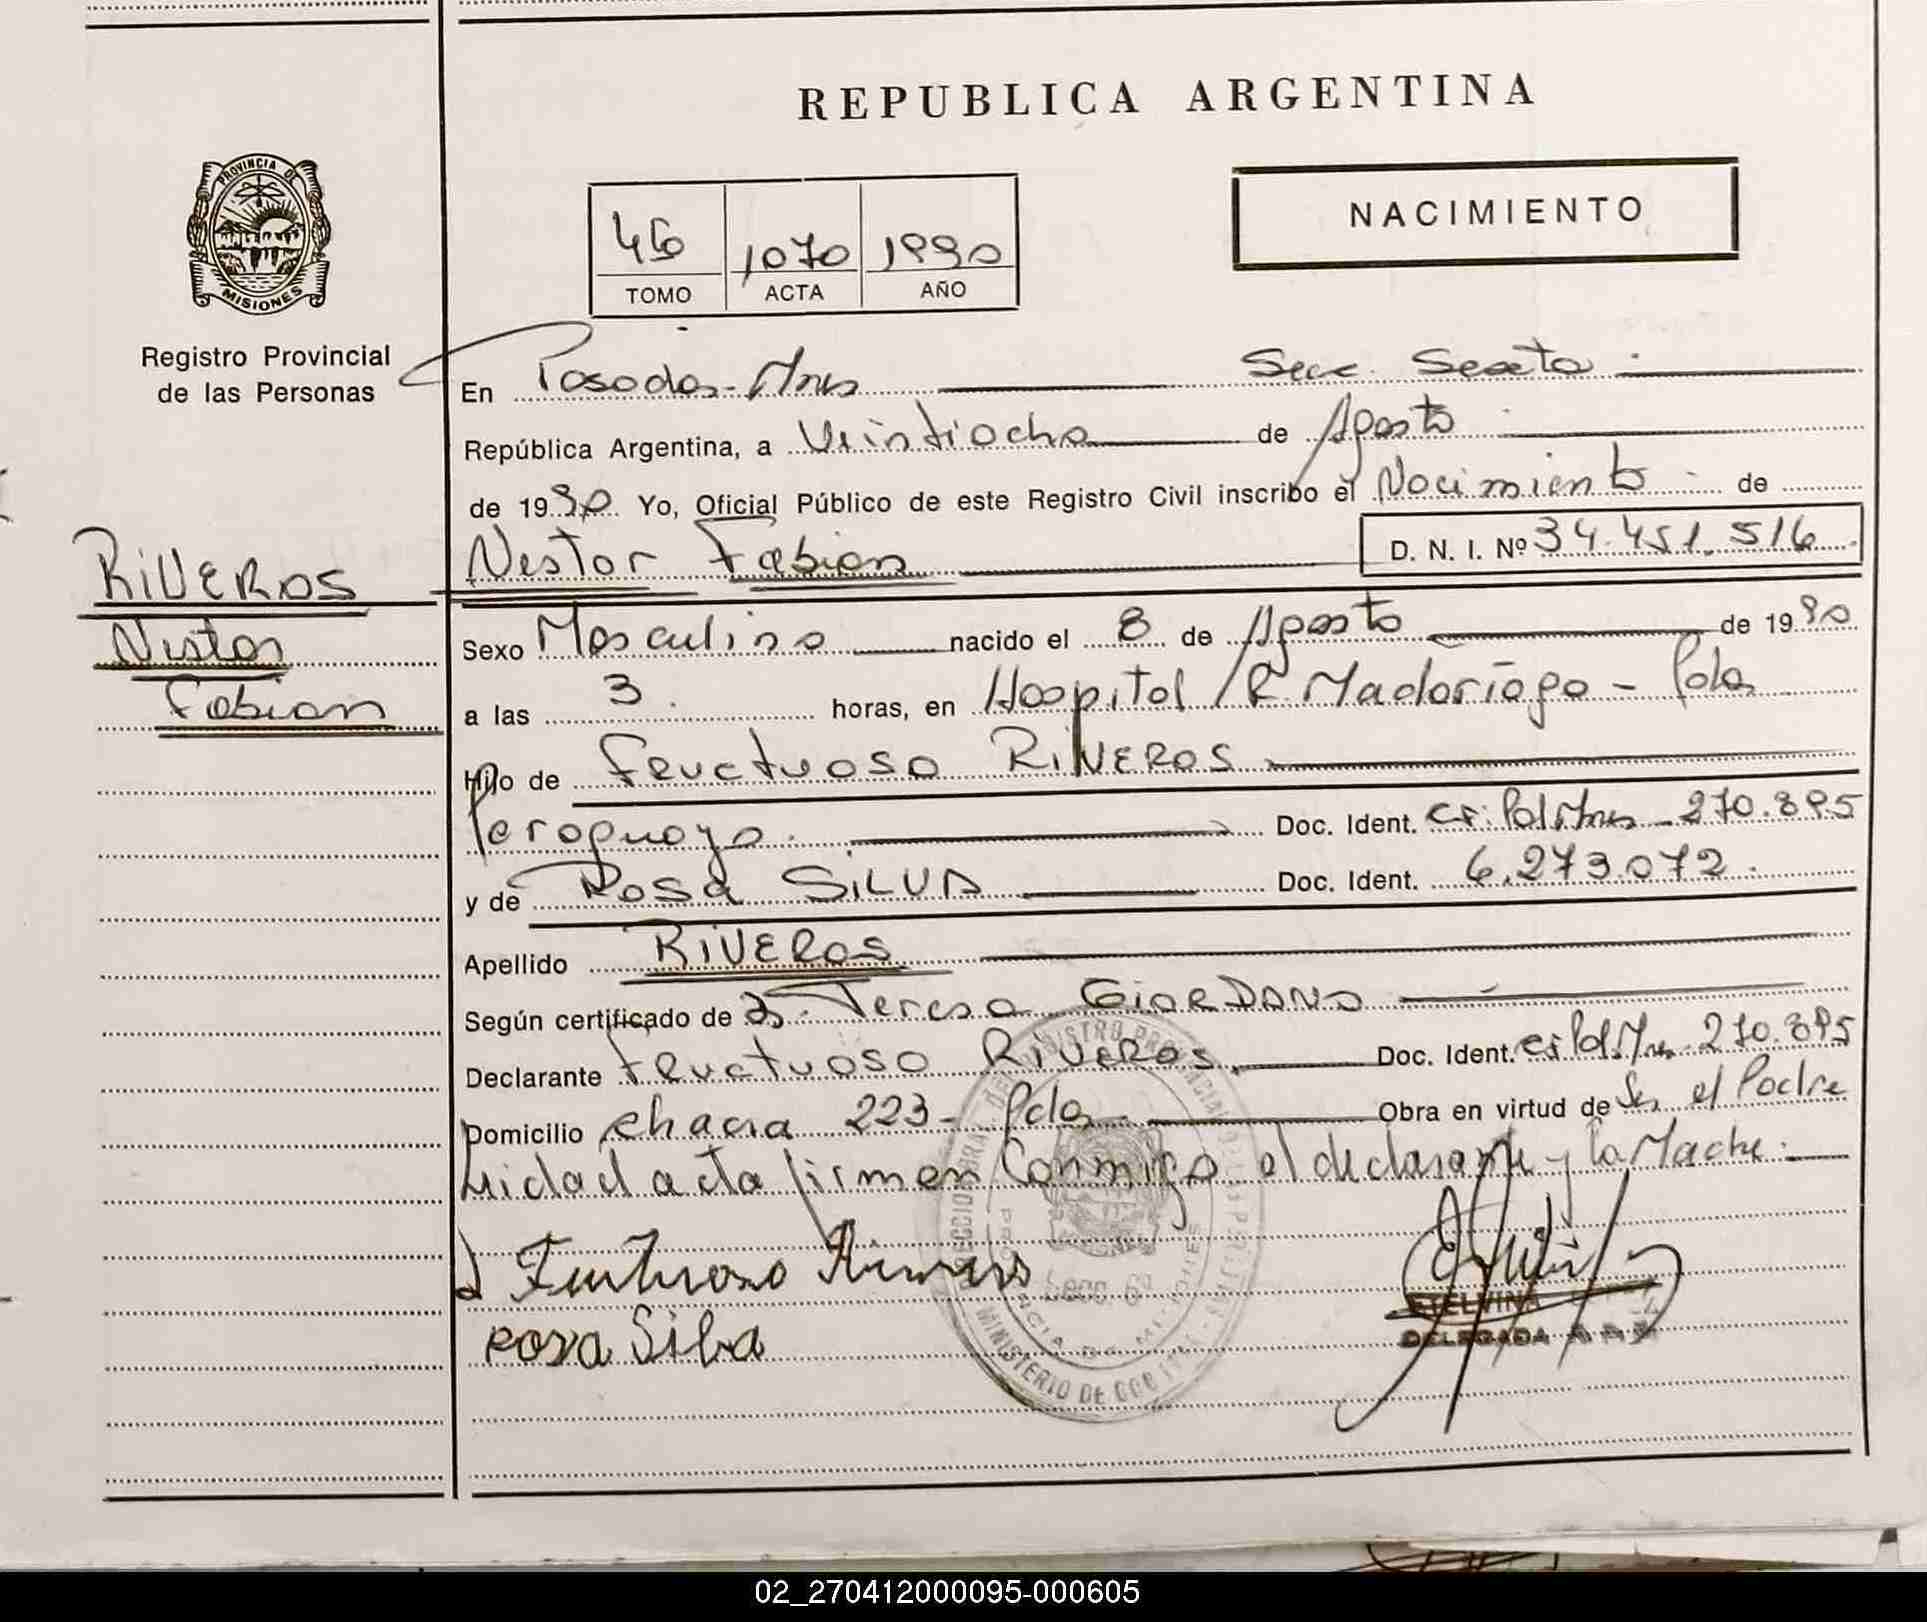 REPUBLICA ARGENTINA
PROVINCIA DE
MISIONES
Registro Provincial
de las Personas
46 1070 1990
TOMO ACTA AÑO
NACIMIENTO
En Posadas - Mnes Secc. Sexta
República Argentina, a Veintiocho de Agosto
de 1990. Yo, Oficial Público de este Registro Civil inscribo el Nacimiento de
Nestor Fabian D. N. I. Nº 34.451.516
RIVEROS
Nestor
Fabian
Sexo Masculino nacido el 8 de Agosto de 1990
a las 3. horas, en Hospital R. Madariaga - Pdas
Hijo de Fructuoso RIVEROS
Paraguayo. Doc. Ident. CI: Pol. Mnes - 270.895
y de Rosa SILVA Doc. Ident. 6.273.072.
Apellido RIVEROS
Según certificado de Teresa GIORDANO
Declarante Fructuoso RIVEROS. Doc. Ident. CI: Pol. Mnes. 270.895
Domicilio chacra 223 - Pdas Obra en virtud de Ser el Padre
Leida el acta firman conmigo el declarante y la Madre.
Fructuoso Riveros
Rosa Silva
ETELVINA
DELEGADA
MINISTERIO DE
02_270412000095-000605